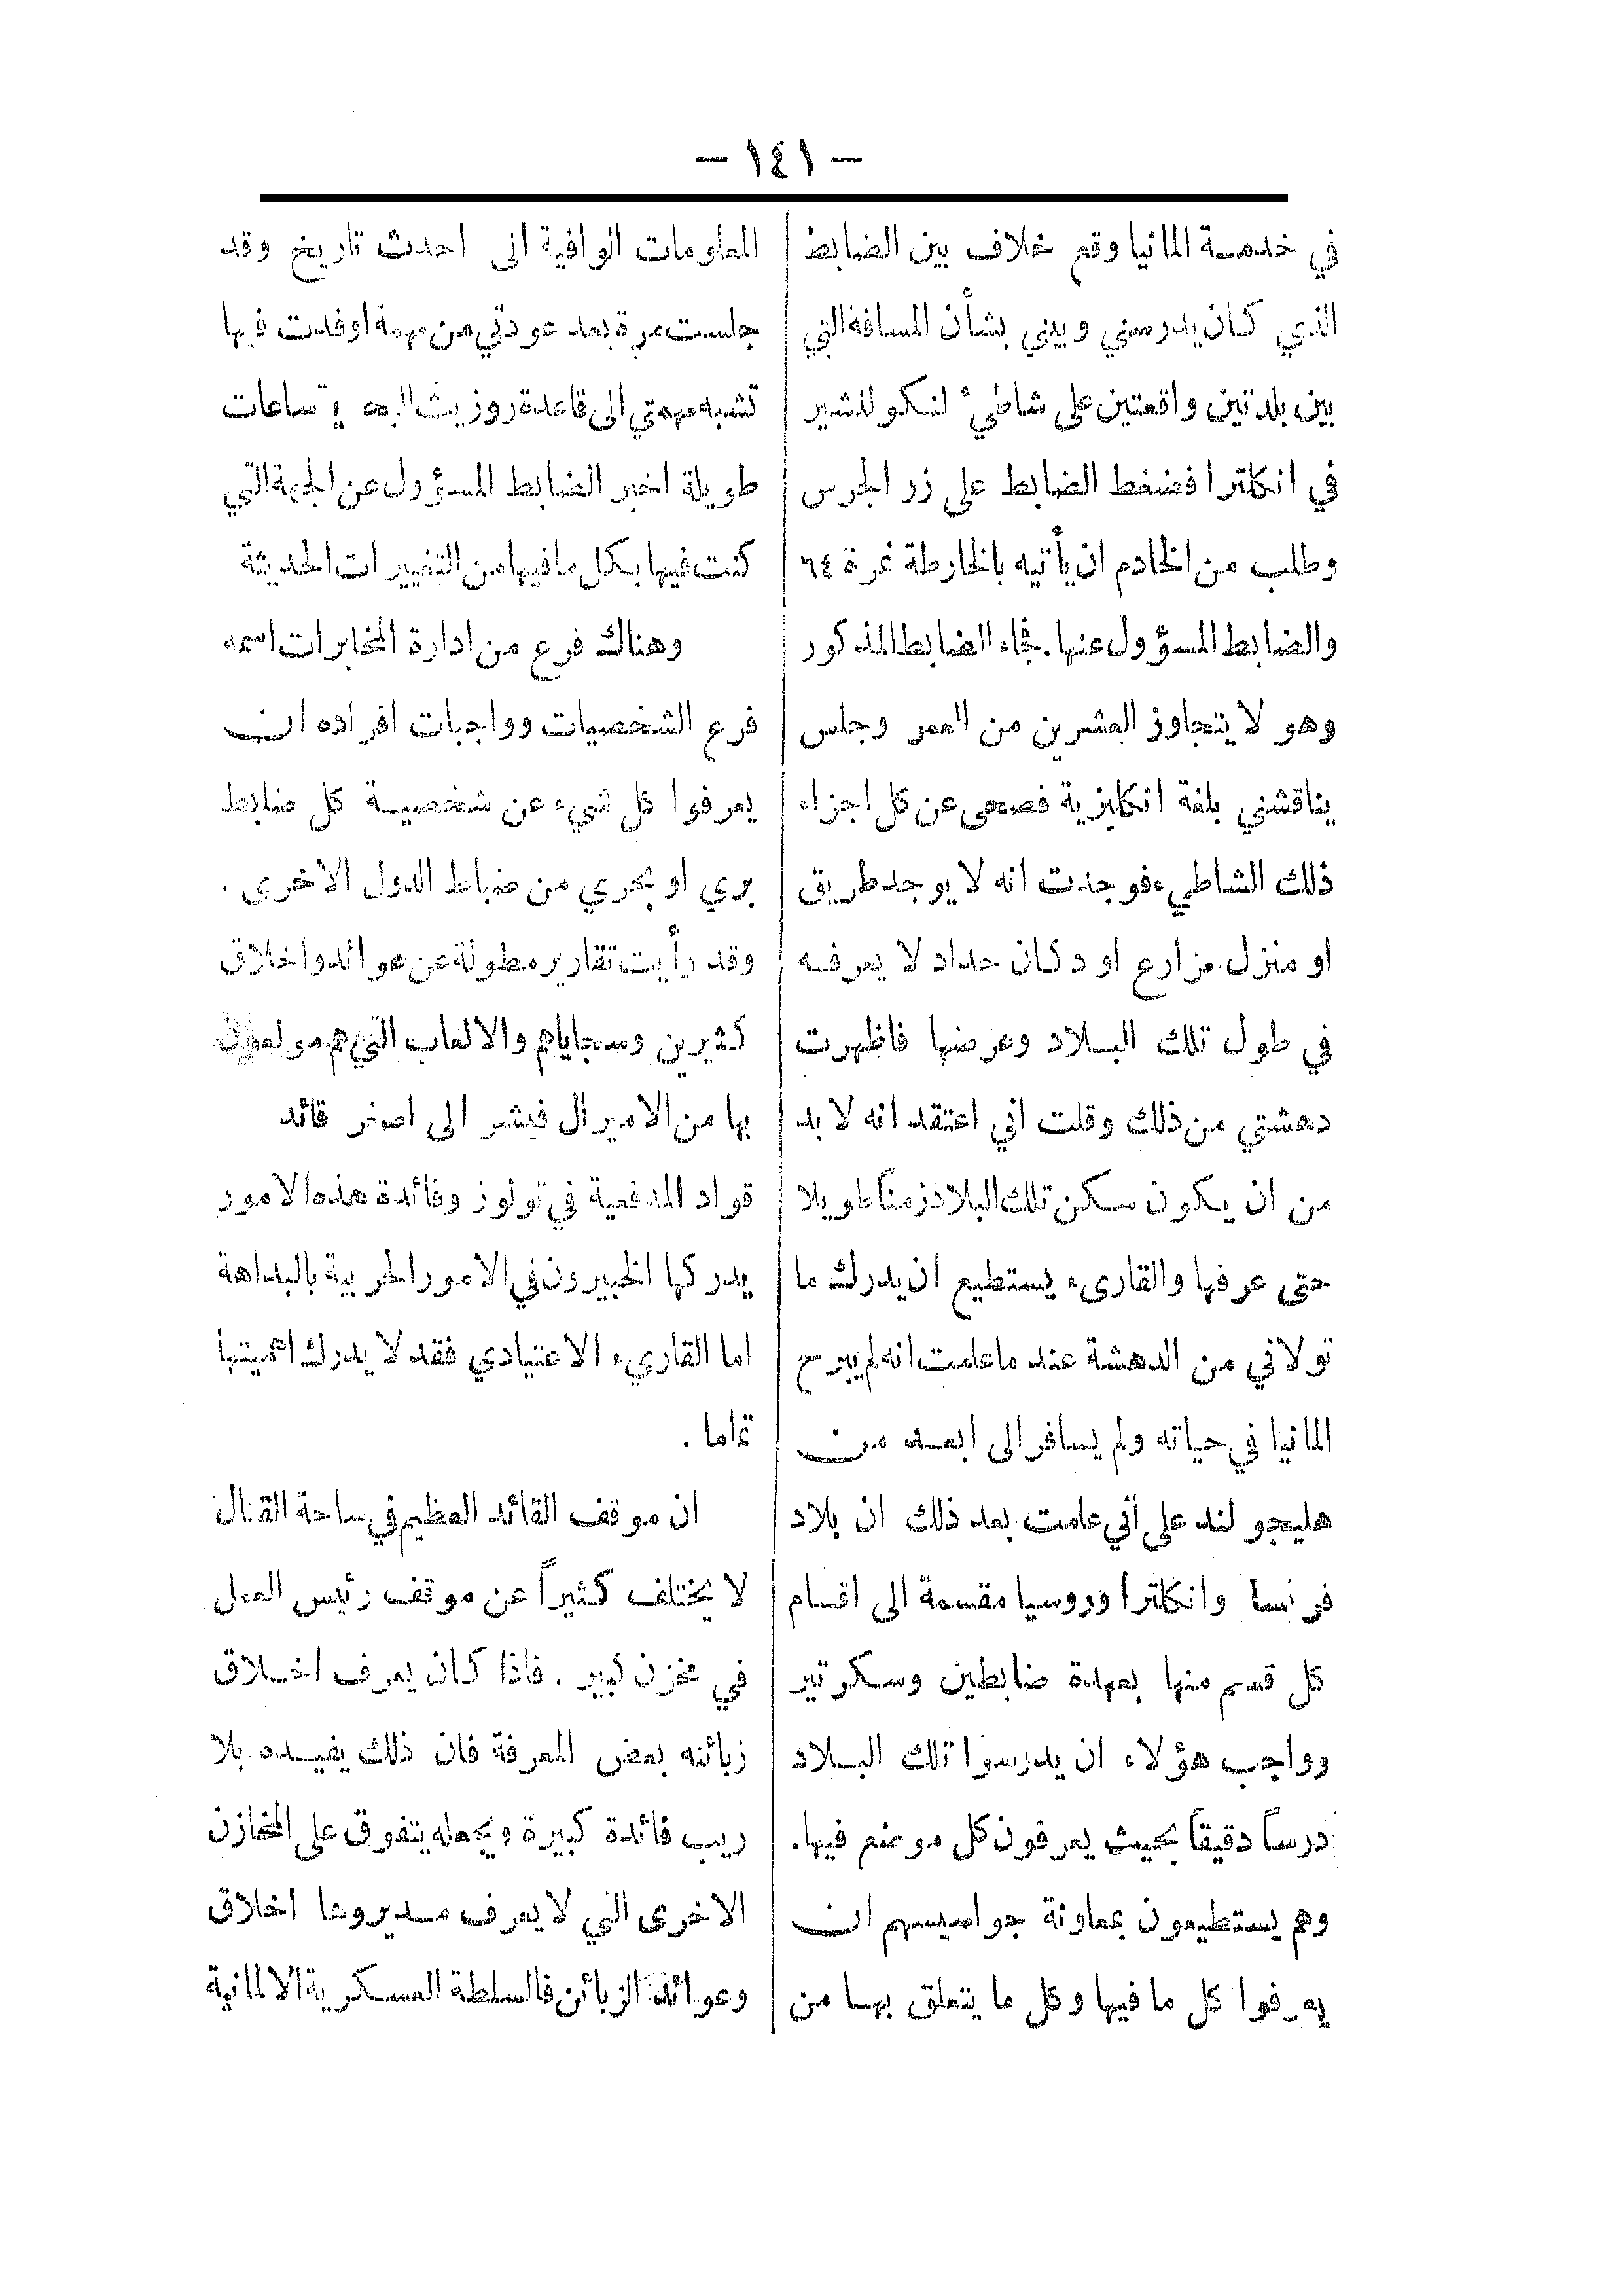 — ١٤١ —
في خدمة المانيا وقع خلاف بين الضابط
الذي كان يدرسني وبيني بشأن المسافة التي
بين بلدتين واقعتين على شاطئ لنكولنشير
في انكلترا فضغط الضابط على زر الجرس
وطلب من الخادم ان يأتيه بالخارطة نمرة ٦٤
والضابط المسؤول عنها. فجاء الضابط المذكور
وهو لا يتجاوز العشرين من العمر وجلس
يناقشني بلغة انكليزية فصحى عن كل اجزاء
ذلك الشاطيء فوجدت انه لا يوجد طريق
او منزل مزارع او دكان حداد لا يعرفه
في طول تلك البلاد وعرضها فاظهرت
دهشتي من ذلك وقلت اني اعتقد انه لا بد
من ان يكون سكن تلك البلاد زمناً طويلا
حتى عرفها والقارىء يستطيع ان يدرك ما
تولاني من الدهشة عند ما علمت انه لم يبرح
المانيا في حياته ولم يسافر الى ابعد من
هليجو لند على أني علمت بعد ذلك ان بلاد
فرنسا وانكلترا وروسيا مقسمة الى اقسام
كل قسم منها بعهدة ضابطين وسكرتير
وواجب هؤلاء ان يدرسوا تلك البلاد
درساً دقيقاً بحيث يعرفون كل موضع فيها.
وهم يستطيعون بمعاونة جواسيسهم ان
يعرفوا كل ما فيها وكل ما يتعلق بها من
المعلومات الوافية الى احدث تاريخ وقد
جلست مرة بعد عودتي من مهمة اوفدت فيها
تشبه مهمتي الى قاعدة روزيث ساعات
طويلة اخبر الضابط المسؤول عن الجهة التي
كنت فيها بكل ما فيها من التغييرات الحديثة
وهناك فرع من ادارة المخابرات اسمه
فرع الشخصيات وواجبات افراده ان
يعرفوا كل شيء عن شخصية كل ضابط
بري او بحري من ضباط الدول الاخرى .
وقد رأيت تقارير مطولة عن عوائد واخلاق
كثيرين وسجاياهم والالعاب التي هم مولعون
بها من الاميرال فيشر الى اصغر قائد
قواد المدفعية في تولوز وفائدة هذه الامور
يدركها الخبيرون في الامور الحربية بالبداهة
اما القاريء الاعتيادي فقد لا يدرك اهميتها
تماما .
ان موقف القائد العظيم في ساحة القتال
لا يختلف كثيراً عن موقف رئيس العمل
في مخزن كبير . فاذا كان يعرف اخلاق
زبائنه بعض المعرفة فان ذلك يفيده بلا
ريب فائدة كبيرة ويجعله يتفوق على المخازن
الاخرى التي لا يعرف مديروها اخلاق
وعوائد الزبائن فالسلطة العسكرية الالمانية